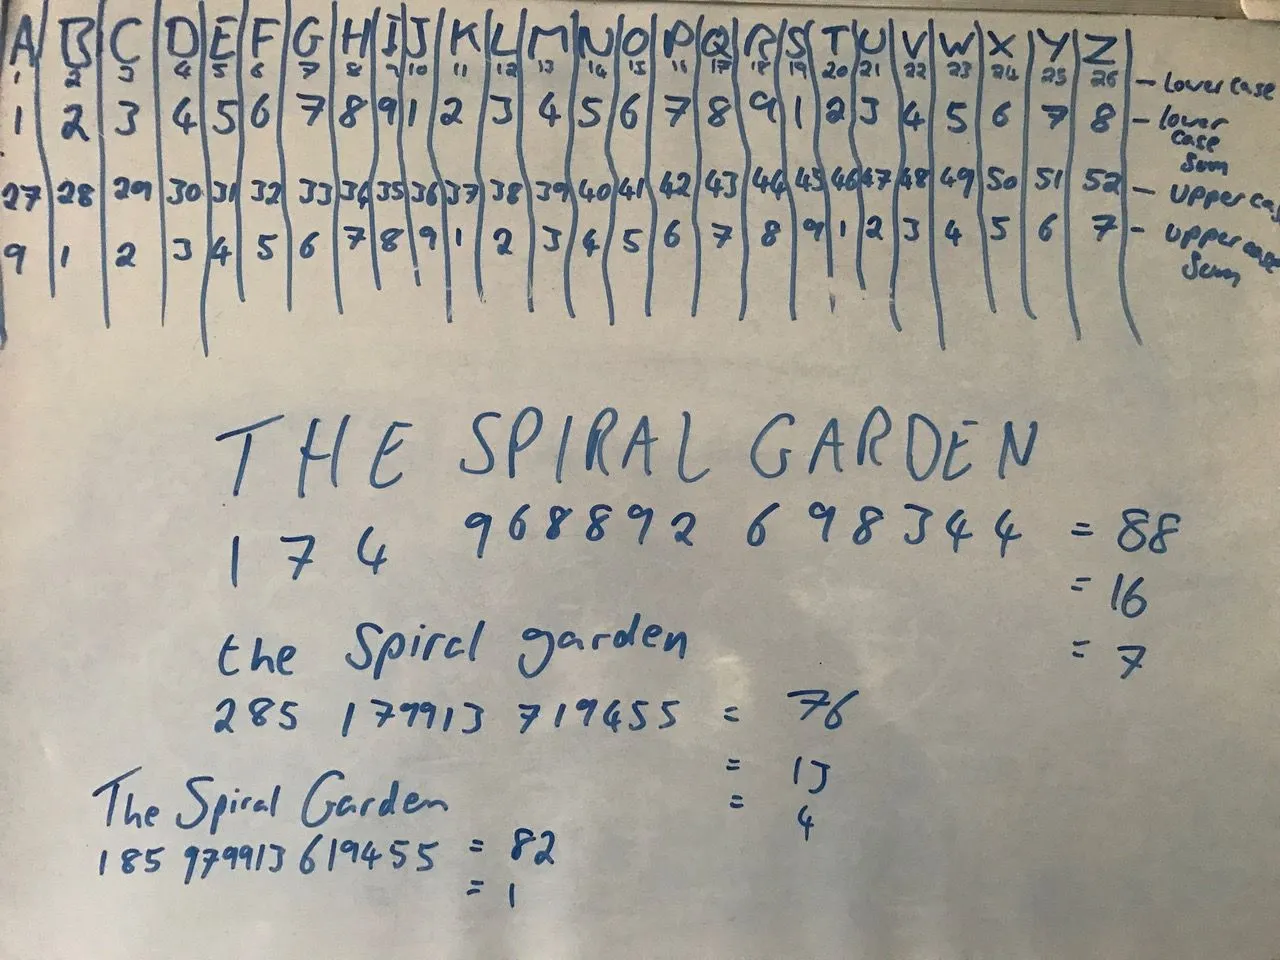 A B C D E F G H I J K L M N O P Q R S T U V W X Y Z
1 2 3 4 5 6 7 8 9 10 11 12 13 14 15 16 17 18 19 20 21 22 23 24 25 26 - lower case
1 2 3 4 5 6 7 8 9 1 2 3 4 5 6 7 8 9 1 2 3 4 5 6 7 8 - lower case sum
27 28 29 30 31 32 33 34 35 36 37 38 39 40 41 42 43 44 45 46 47 48 49 50 51 52 - upper cas
9 1 2 3 4 5 6 7 8 9 1 2 3 4 5 6 7 8 9 1 2 3 4 5 6 7 - upper case sum
THE SPIRAL GARDEN
1 7 4 968892 698344 = 88
= 16
= 7
the Spiral garden
285 179913 719455 = 76
= 13
= 4
The Spiral Garden
185 979913 619455 = 82
= 1